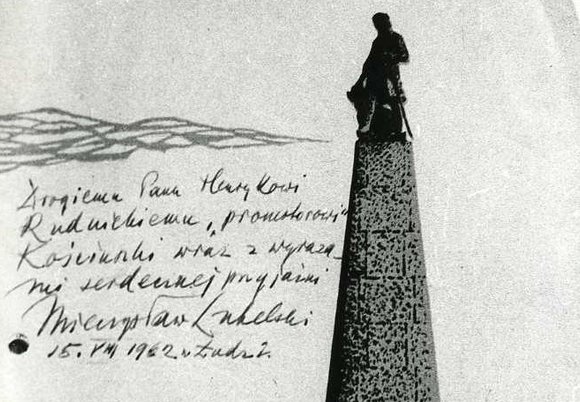 Drogiemu Panu Henrykowi
Rudnickiemu „promotorowi"
Kościuszki wraz z wyraza-
mi serdecznej przyjaźni
Mieczysław Lubelski
15. VIII 1962 w Łodzi.